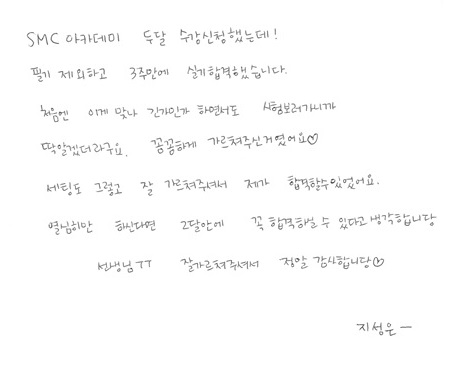 SMC 아카데미 두달 수강신청했는데!
필기 제외하고 3주만에 실기합격했습니다.
처음엔 이게 맞나 긴가민가 하면서도 시험보러가니까
딱알겠더라구요. 꼼꼼하게 가르쳐주신거였어요♡
세팅도 그렇고 잘 가르쳐주셔서 제가 합격할수있었어요.
열심히만 하신다면 2달안에 꼭 합격하실 수 있다고 생각합니당
선생님ㅠㅠ 잘가르쳐주셔서 정말 감사합니당♡
지성은 ㅡ